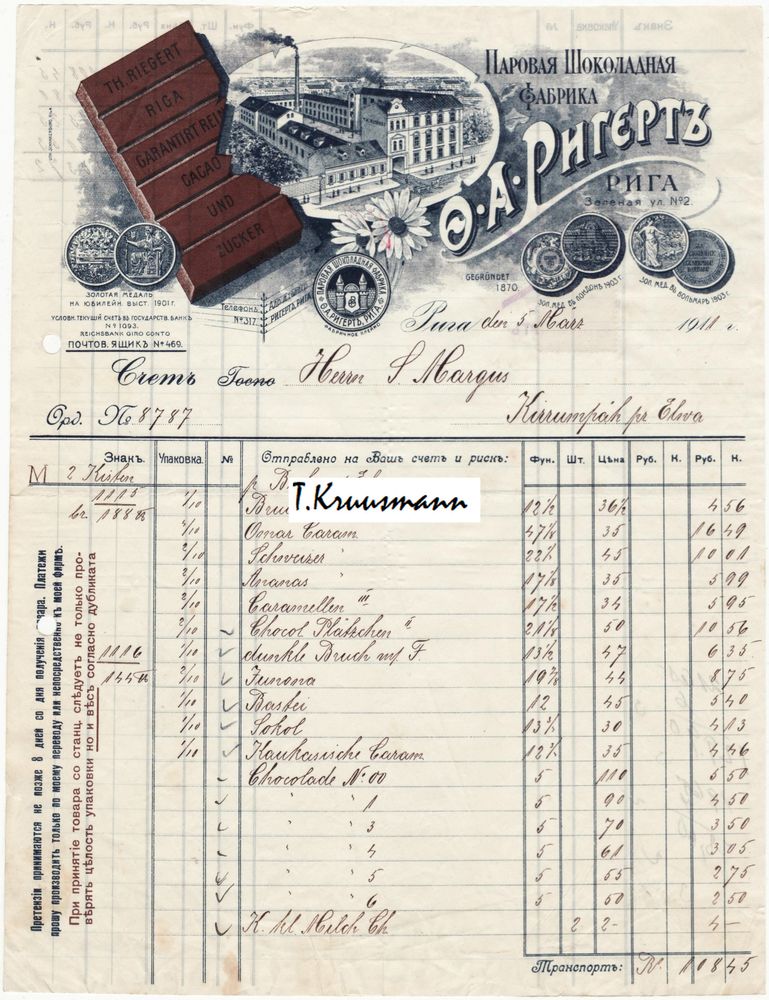 TH. RIEGERT
RIGA
GARANTIRT REIN
CACAO
UND
ZUCKER
ПАРОВАЯ ШОКОЛАДНАЯ
ФАБРИКА
Ѳ. А. РИГЕРТЪ
РИГА
Зеленая ул. №2.
GEGRÜNDET
1870.
ЗОЛОТАЯ МЕДАЛЬ
НА ЮБИЛЕЙН. ВЫСТ. 1901 г.
УСЛОВН. ТЕКУЩІЙ СЧЕТЪ ВЪ ГОСУДАРСТВ. БАНКѢ
№ 1093.
REICHSBANK GIRO CONTO
ПОЧТОВ. ЯЩИКЪ № 469.
Телефонъ
№ 317.
ПАРОВАЯ ШОКОЛАДНАЯ ФАБРИКА
Ѳ. А. РИГЕРТЪ, РИГА
ФАБРИЧНОЕ КЛЕЙМО
ЗОЛ. МЕД. ВЪ ЛОНДОНѢ 1903 г.
ЗОЛ. МЕД. ВЪ ВОЛЬМАРѢ 1903 г.
Рига den 5 März 1911 г.
Счетъ Госпо Herrn S Margus
Орд. № 8787 Kirrumpäh pr Elwa
Знакъ. Упаковка. № Отправлено на Вашъ счетъ и рискъ: Фун. Шт. Цѣна Руб. К. Руб. К.
M 2 Kisten
T.Kruusmann
1115 1/10 12½ 36½ 4 56
br. 188
Omar Caram 47½ 35 16 49
2/10 Schweizer " 22½ 45 10 01
2/10 Ananas " 35 5 99
2/10 Caramellen III 17½ 34 5 95
2/10 Chocol Plätzchen II 50 10 56
1116 1/10 dunkle Bruch m/ F. 13½ 47 6 35
144 2/10 Junona 44 8 75
1/10 Bastei 12 45 5 40
1/10 Sokol 30 4 13
1/10 Kaukasische Caram 35 4 46
Chocolade No: 00 5 110 5 50
" " 1 5 90 4 50
" " 3 5 70 3 50
" " 4 5 61 3 05
" " 5 5 55 2 75
" " 6 5 50 2 50
K. kl Milch Ch 2 2- 4-
Транспортъ: R. 108 45
Претензіи принимаются не позже 8 дней со дня полученія товара. Платежи
прошу производить только по моему переводу или непосредственно къ моей фирмѣ.
При принятіе товара со станц. слѣдуетъ не только про-
вѣрять цѣлость упаковки но и вѣсъ согласно дубликата